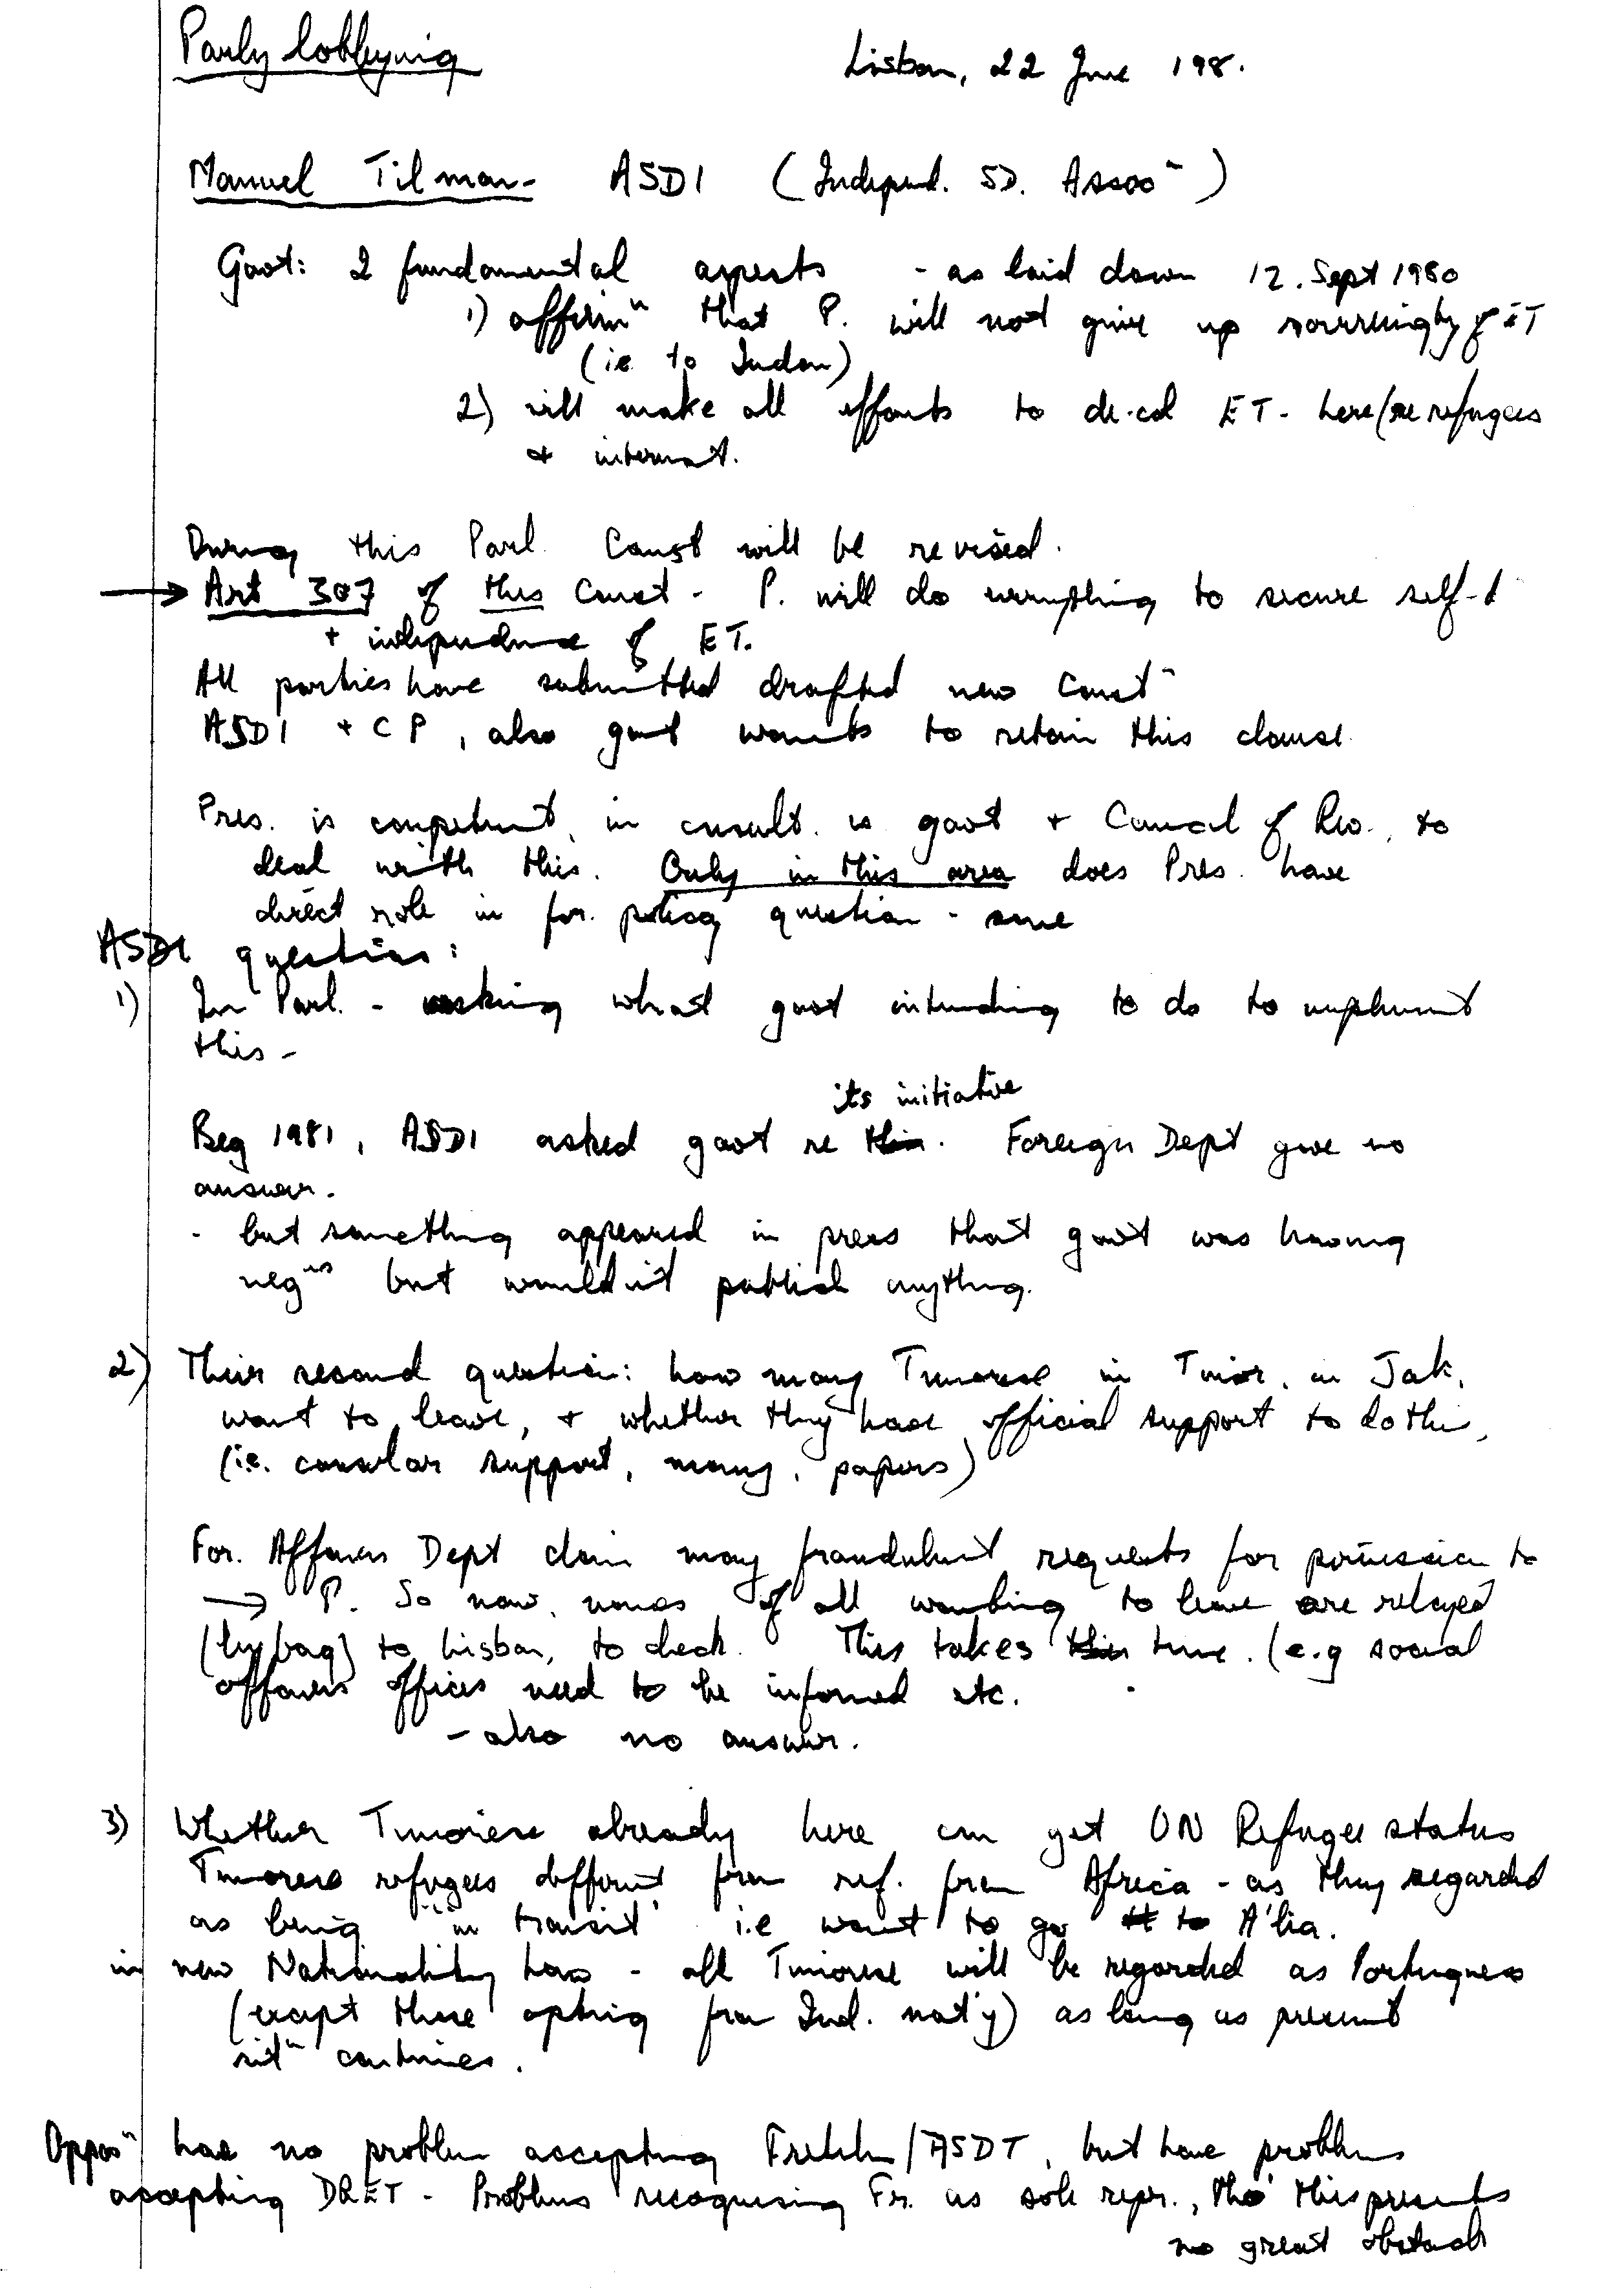 Parly lobbying
Lisbon, 22 June 198.
Manuel Tilman - ASDI (Independ. SD. Assocn)
Govt: 2 fundamental aspects - as laid down 12. Sept 1980
1) affirmn that P. will not give up sovereignty of ET
(ie. to Indon)
2) will make all efforts to de-col ET - here (re refugees
+ internat.
During this Parl. Const will be revised.
→ Art 307 of this Const - P. will do everything to secure self-d
+ independence of ET.
All parties have submitted drafted new Constn
ASDI + CP, also govt wants to retain this clause.
Pres. is competent, in consult. w govt + Council of Rev., to
deal with this. Only in this area does Pres. have
direct role in for. policy question -
ASDI questions:
1) In Parl. - asking what govt intending to do to implement
this -
its initiative
Beg 1981, ASDI asked govt re this. Foreign Dept give no
answer.
- but something appeared in press that govt was having
negns but wouldn't publish anything.
2) Their second question: how many Timorese in Timor, in Jak,
want to leave, + whether they have official support to do this,
(i.e. consular support, money, papers)
For. Affairs Dept claim many fraudulent requests for permission to
→ P. So now, names of all wanting to leave are relayed
(by bag) to Lisbon, to check. This takes this time. (e.g social
affairs offices need to be informed etc.
- also no answer.
3) Whether Timorese already here can get UN Refugee status
Timorese refugees different from ref. from Africa - as they regarded
as being "in transit" i.e want to go to A'lia.
in new Nationality Law - all Timorese will be regarded as Portuguese
(except those opting for Ind. nat'y) as long as present
sitn continues.
Opposn has no problem accepting Fretilin/ASDT, but have problems
accepting DRET - Problems recognising Fr. as sole repr., tho' this presents
no great obstacle